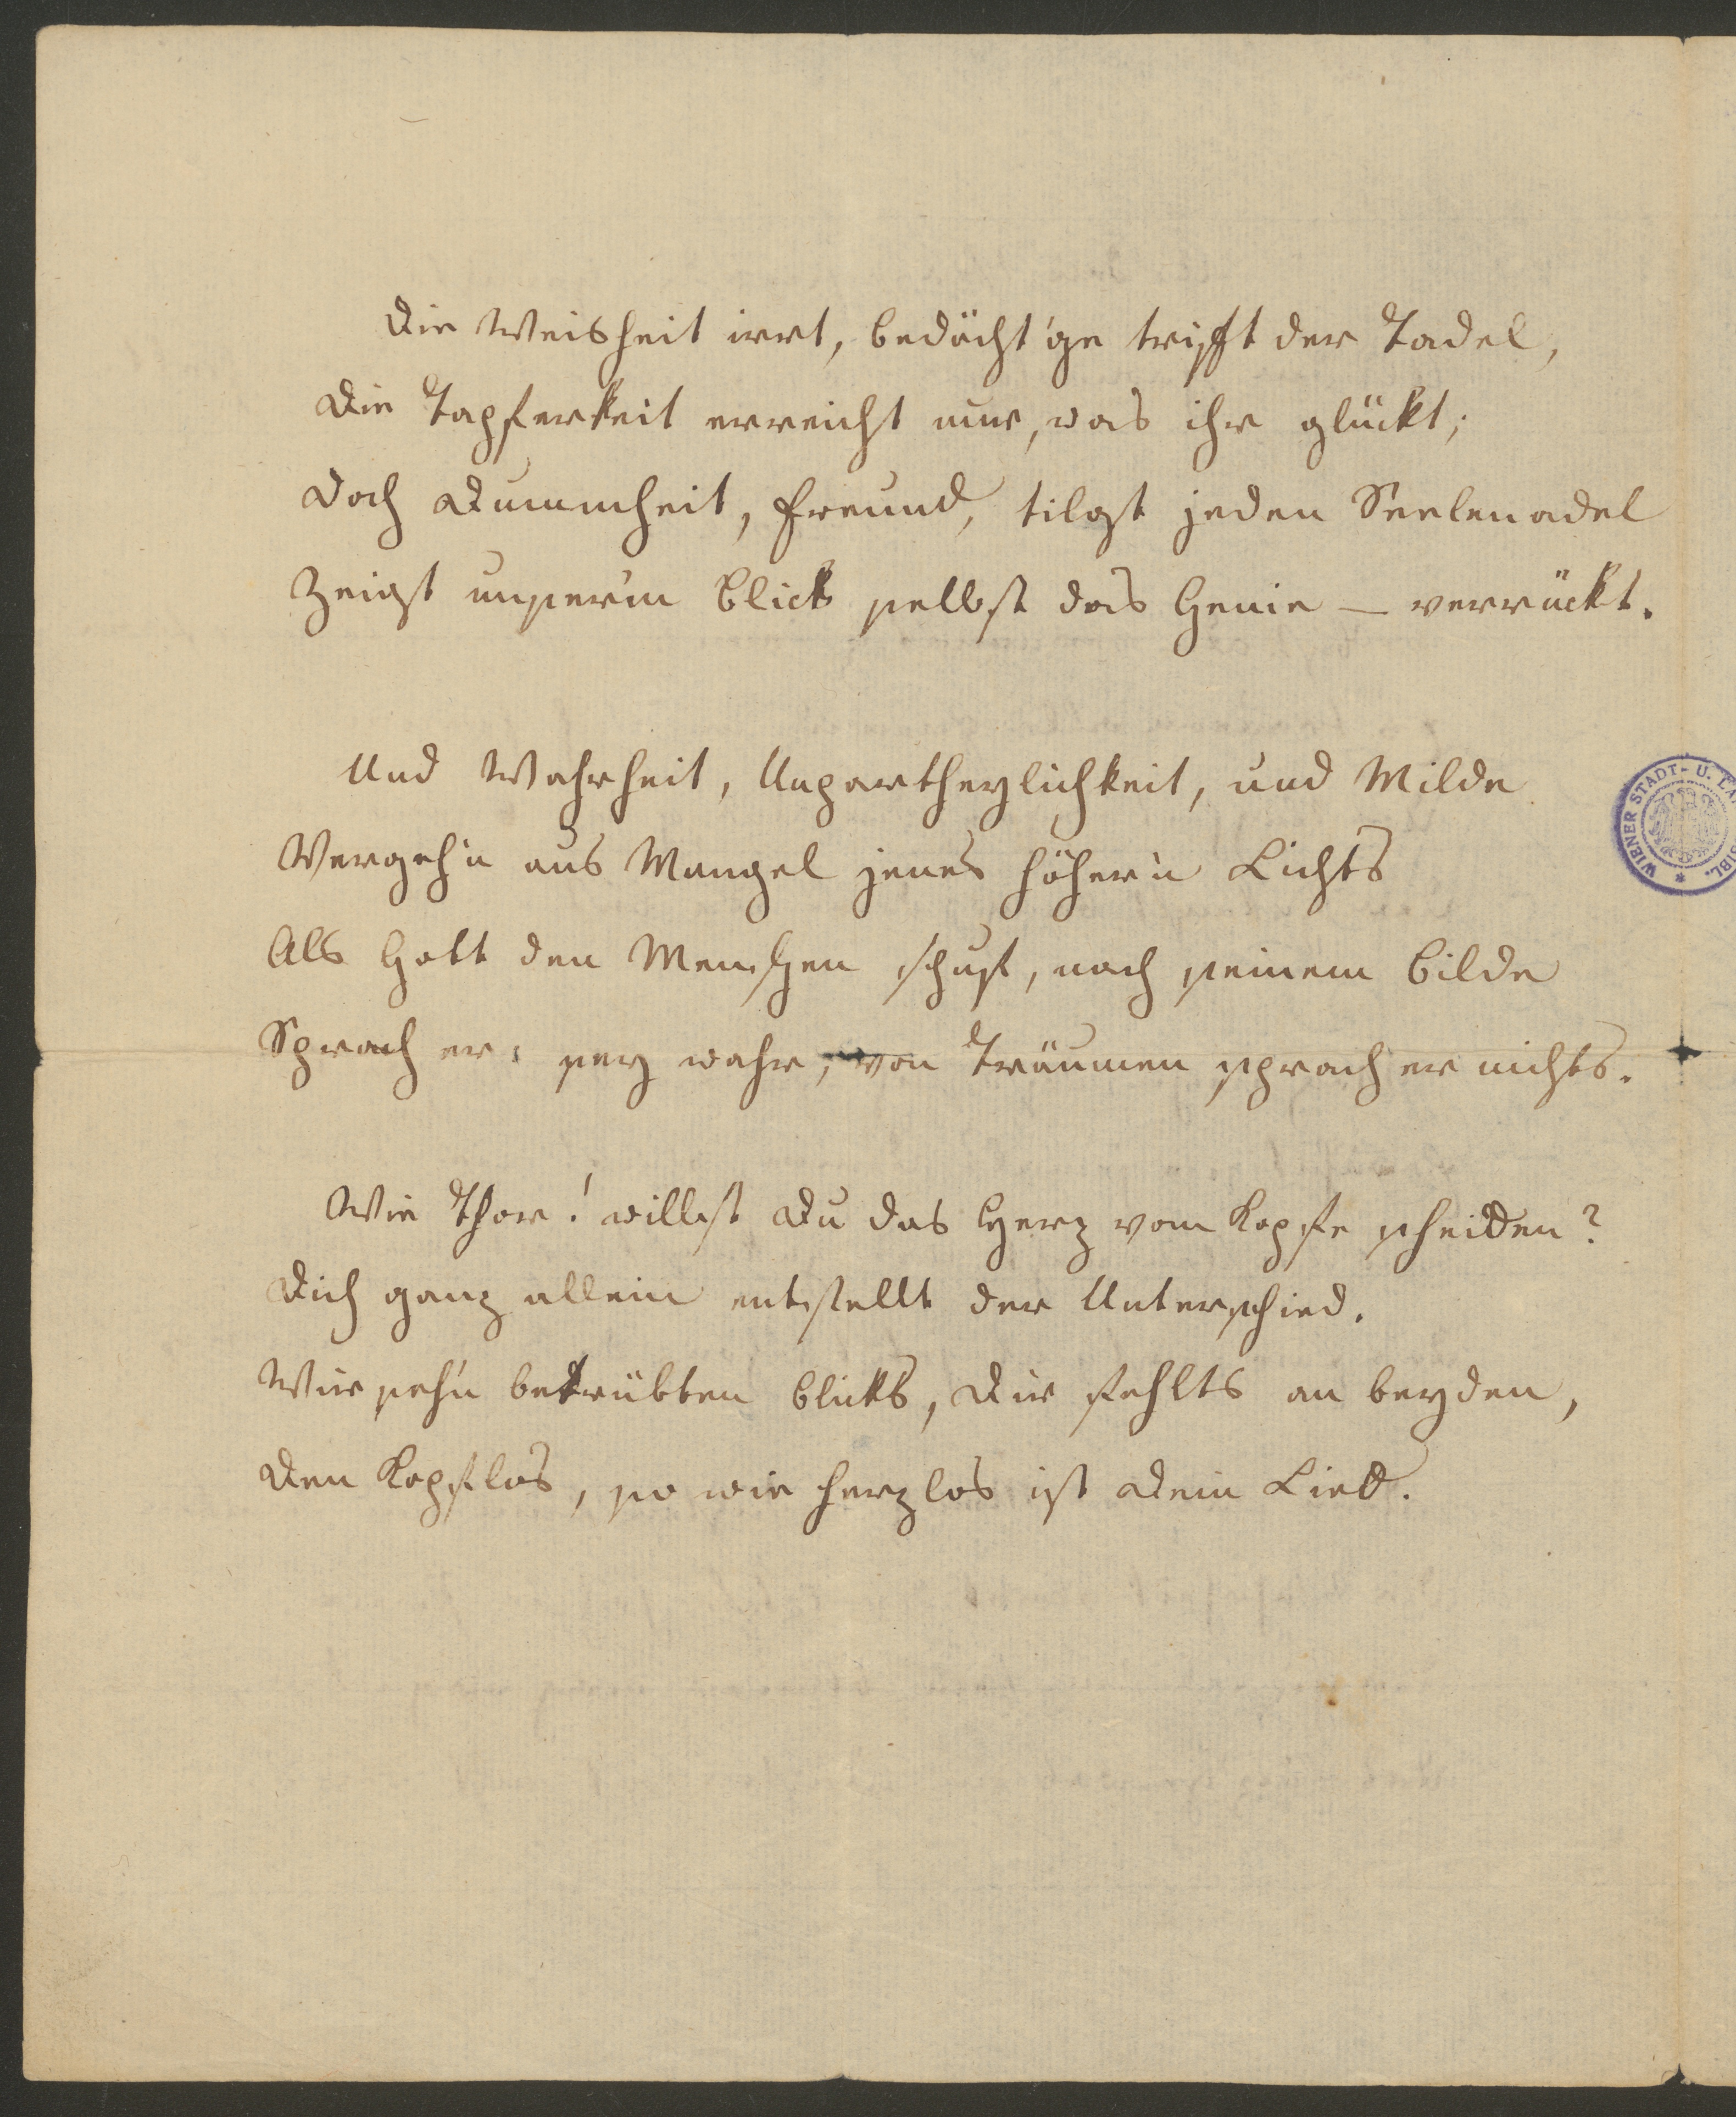 Die Weisheit irrt, bedächt'ge trifft der Tadel,
Die Tapferkeit erreicht nur, was ihr glückt;
Doch Dummheit, Freund, tilgt jeden Seelenadel
Zeigt unser'm Blick selbst das Genie — verrückt.
Und Wahrheit, Unpartheylichkeit, und Milde
Vergeh'n aus Mangel jenes höher'n Lichts
Als Gott den Menschen schuf, nach seinem Bilde
Sprach er: sey wahr, von Träumen sprach er nichts.
Wie Thor! willst Du das Herz vom Kopfe scheiden?
Dich ganz allein entstellt der Unterschied.
Wir seh'n betrübten Blicks, Dir fehlts an beyden,
Den Kopflos, so wie herzlos ist Dein Lied.
WIENER STADT- U. BIBL.